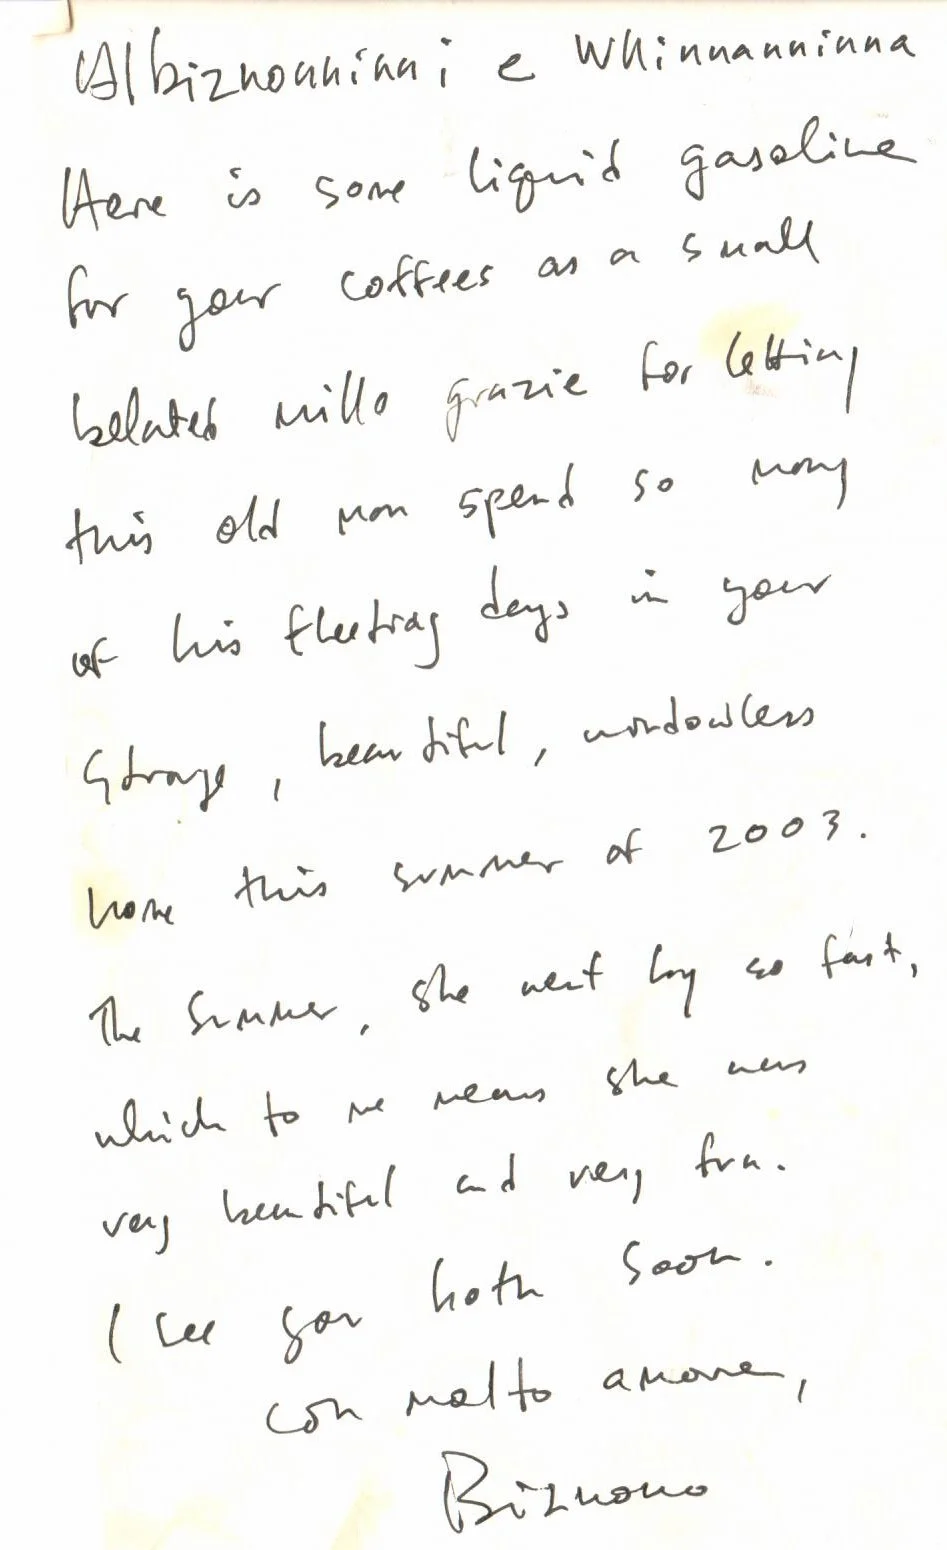 Albiznonninni e Whinnanninna
Here is some liquid gasoline
for your coffees as a small
belated mille grazie for letting
this old man spend so many
of his fleeting days in your
strange, beautiful, windowless
home this summer of 2003.
The Summer, she went by so fast,
which to me means she was
very beautiful and very fun.
I see you both soon.
con molto amore,
Biznono